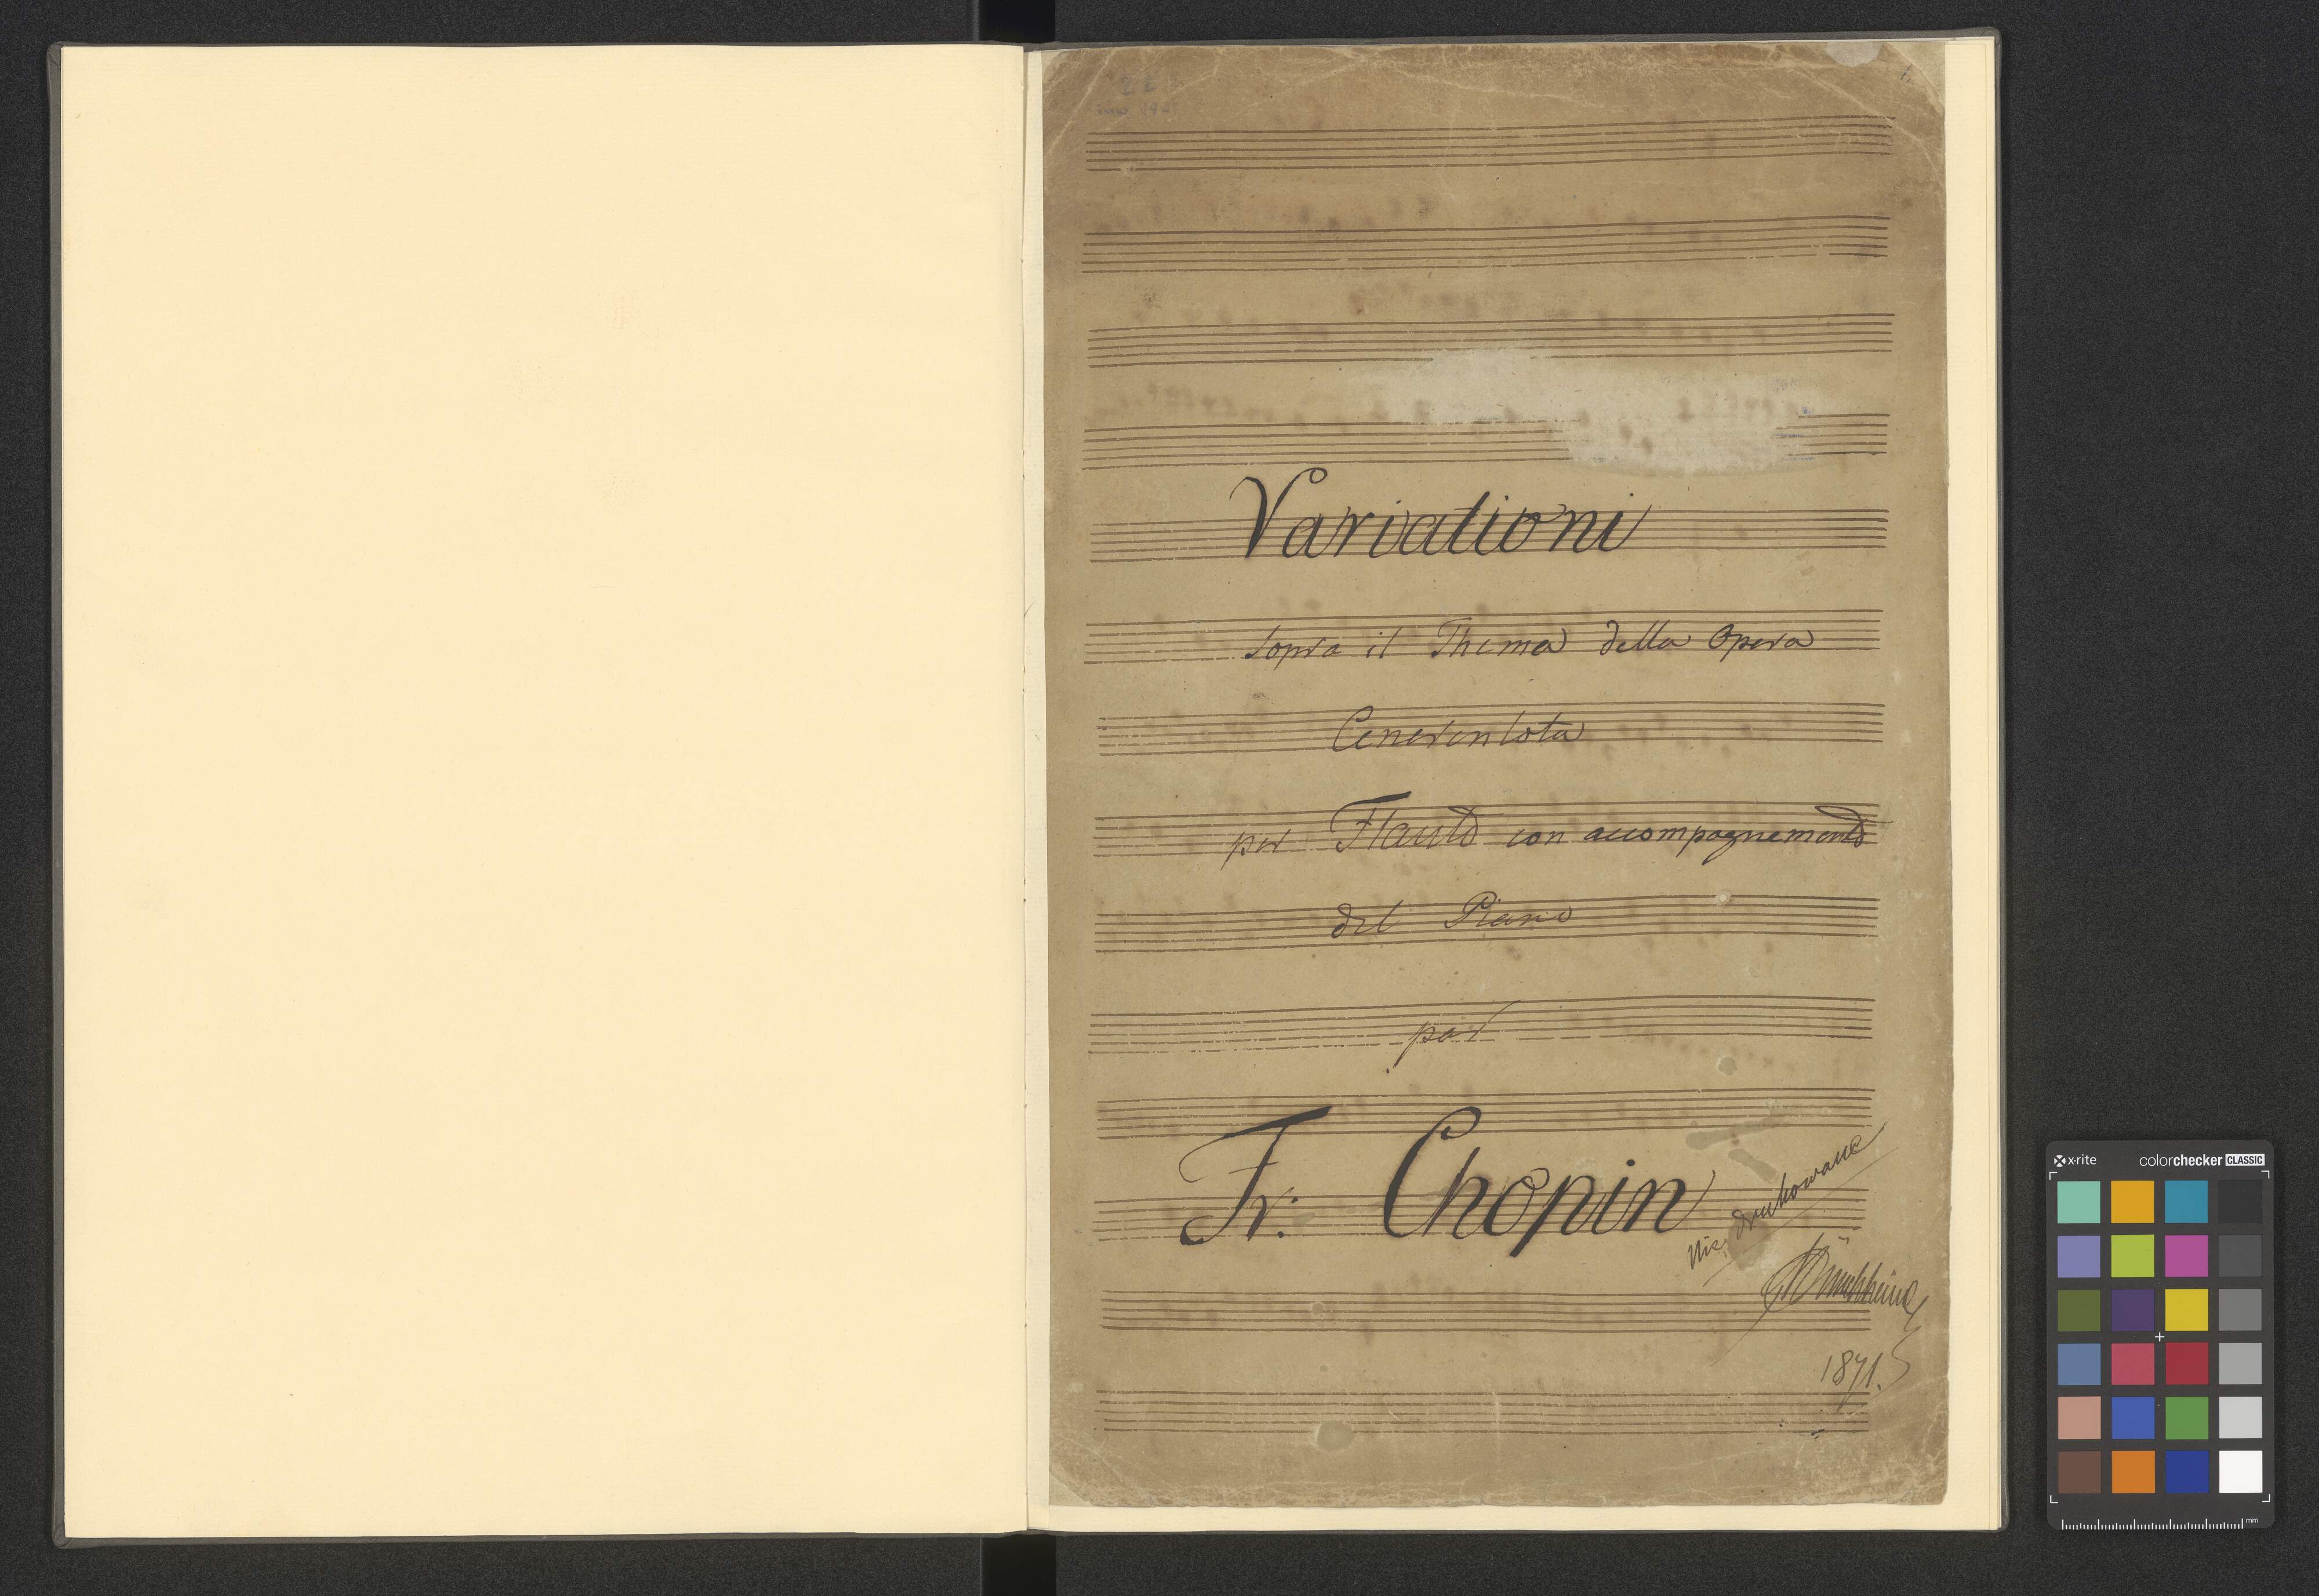 Variationi
sopra il Thema della Opera
Cenerentola
per Flauto con accompagnemento
del Piano
par
Fr: Chopin
Nie drukowane
1871.
x-rite colorchecker CLASSIC
mm